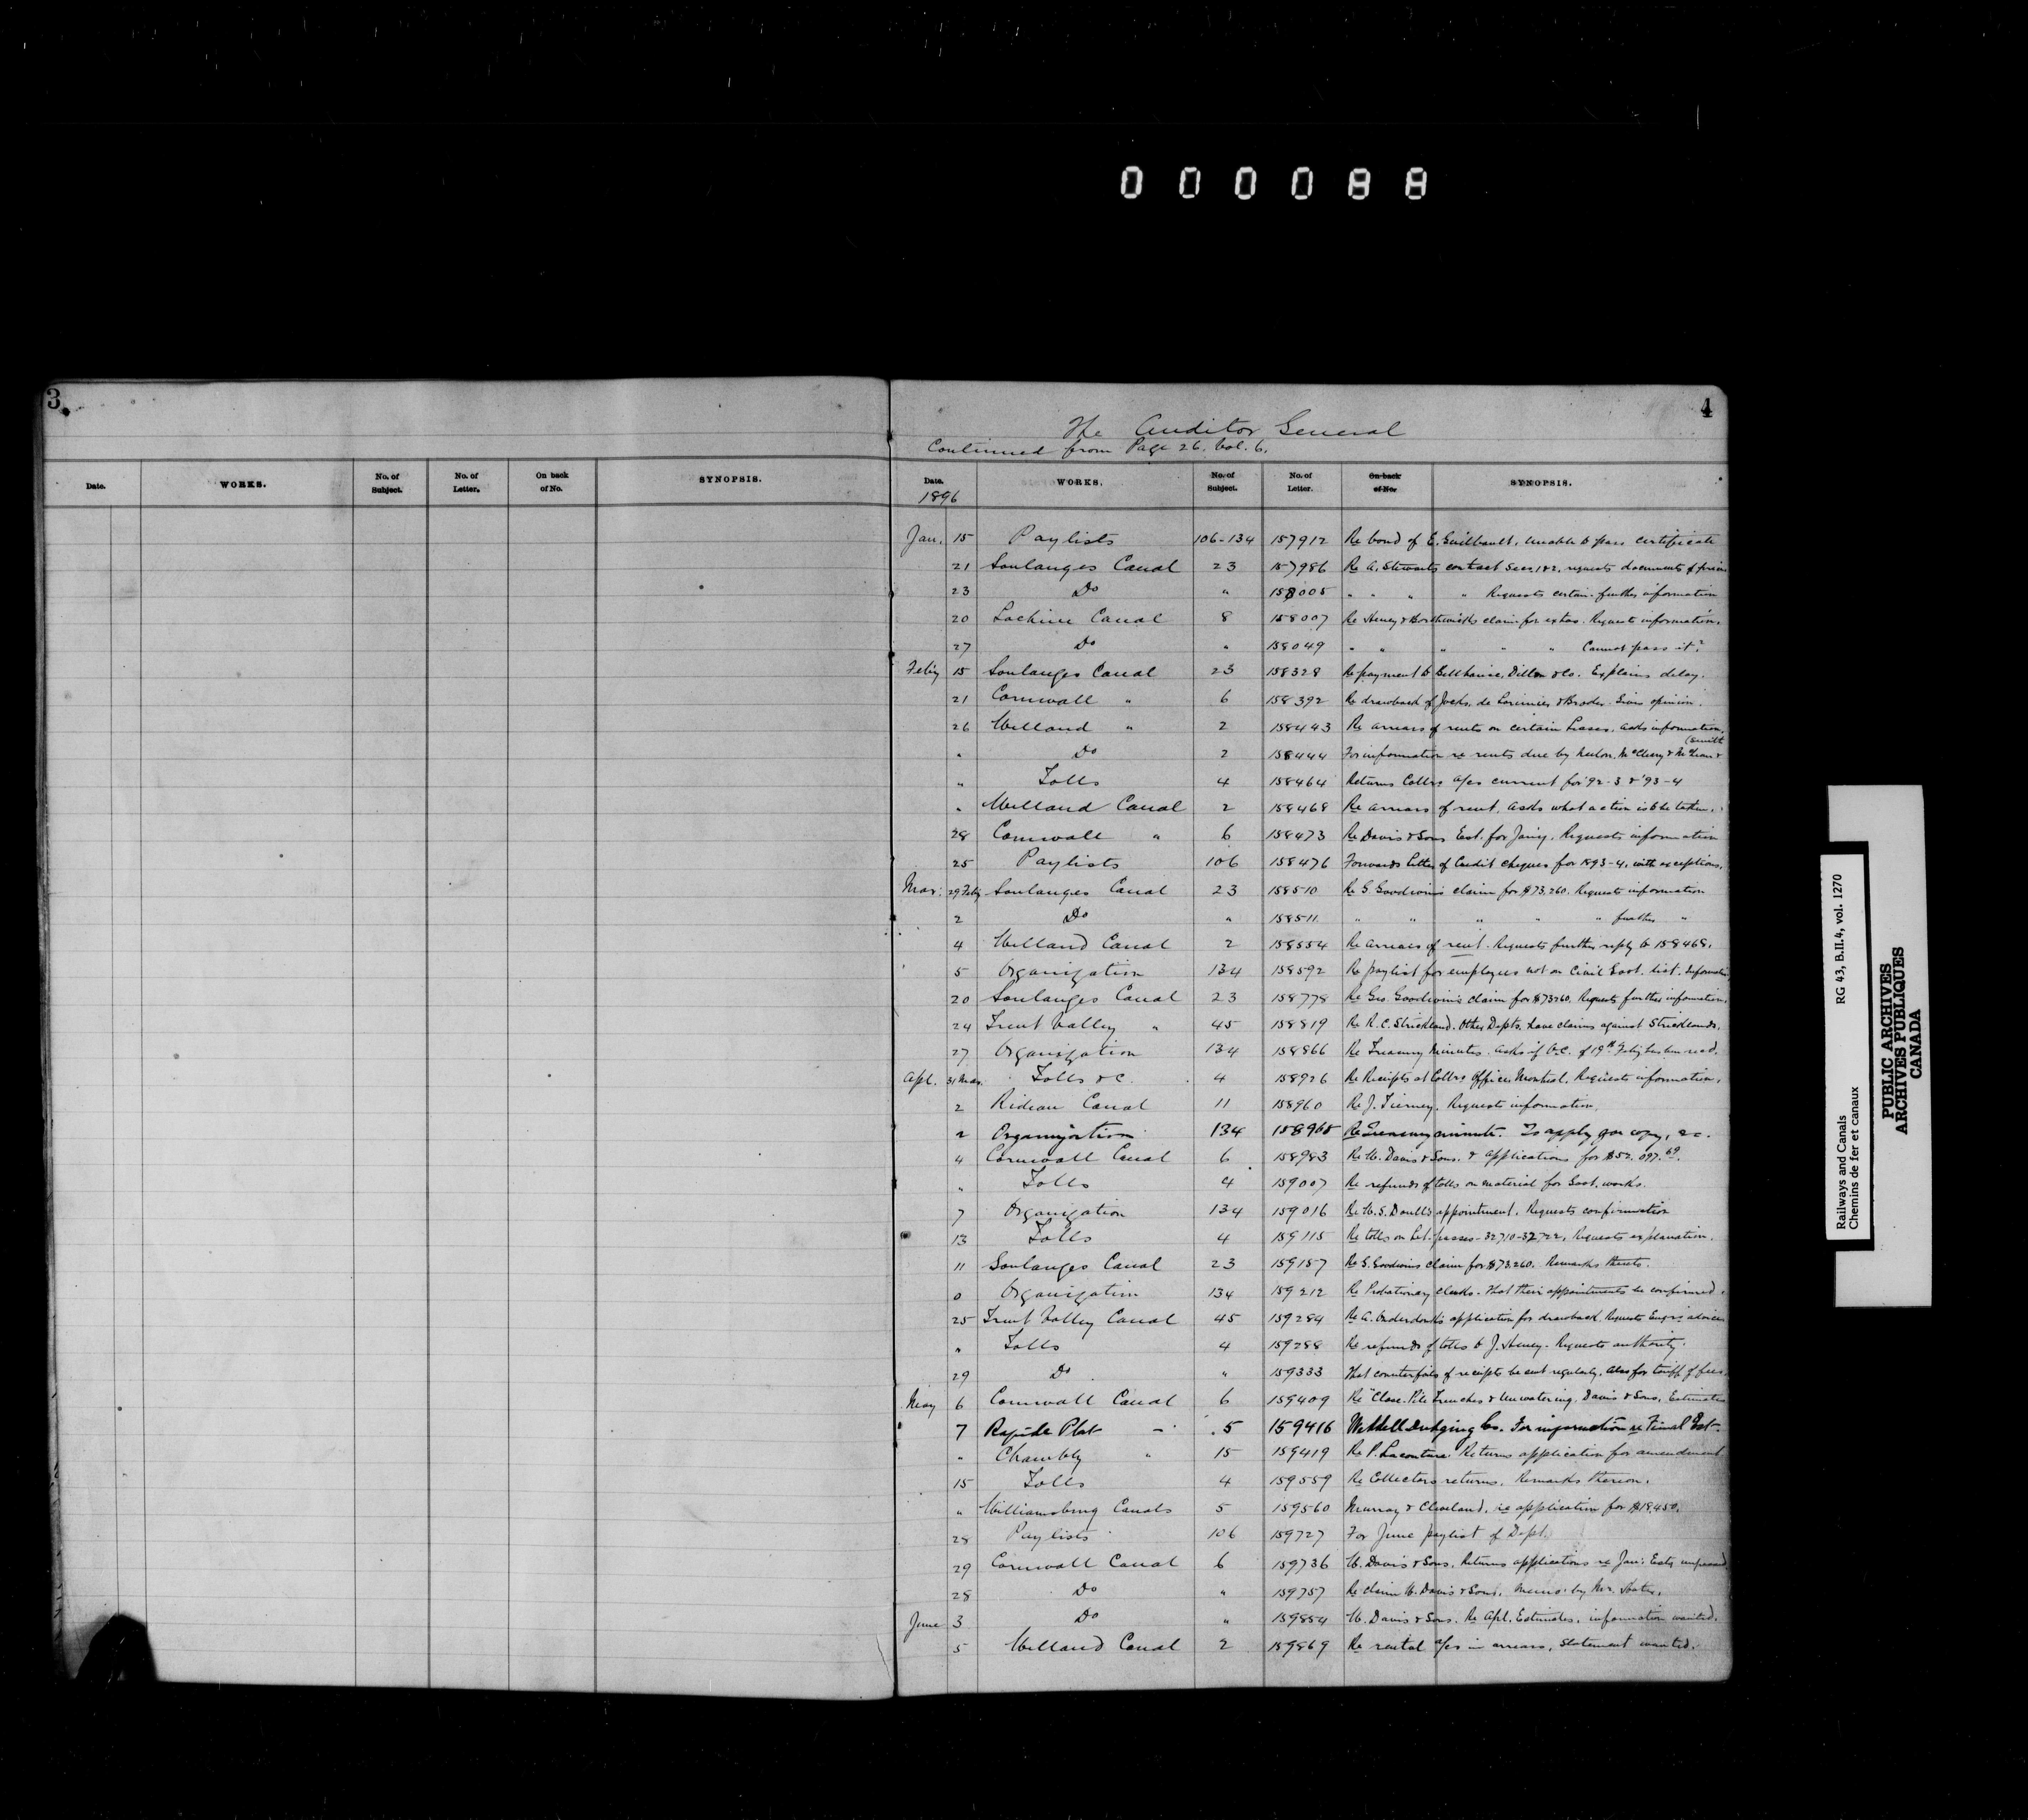 000088
3
4
The Auditor General
Continued from Page 26. Vol. 6.
Date. WORKS. No. of Subject. No. of Letter. On back of No. SYNOPSIS.
Date. WORKS. No. of Subject. No. of Letter. On back of No. SYNOPSIS.
1896
Jan. 15 Paylists 106-134 157912 Re bond of E. Guilbault, unable to pass certificate
21 Soulanges Canal 23 157986 Re A. Stewarts contract Secs. 1 & 2, requests documents of
23 Do " 158005 " " " " Requests certain further information
20 Lachine Canal 8 158007 Re Heney & Borthwicks claim for extras. Requests information.
27 Do " 158049 " " " " " Cannot pass it.
Feb'y 15 Soulanges Canal 23 158328 Re payment to Dillon & Co. Explains delay.
21 Cornwall " 6 158392 Re drawback of de Lorimier & Broder. Gives opinion.
26 Welland " 2 158443 Re arrears of rents on certain Leases, asks information.
" Do 2 158444 For information re rents due by McCleary & McLean & (Smith
" Tolls 4 158464 Returns Collrs a/cs current for '92-3 & '93-4
" Welland Canal 2 158468 Re arrears of rent, asks what action is to be taken.
28 Cornwall " 6 158473 Re Davis & Sons Est. for Jan'y. Requests information
25 Paylists 106 158476 Forwards Letter of Credit cheques for 1893-4, with exceptions.
Mar. 29 Feb'y Soulanges Canal 23 158510 Re G Goodwin's claim for $73,260. Requests information
2 Do " 158511 " " " " " further "
4 Welland Canal 2 158554 Re arrears of rent. Requests further reply to 158468.
5 Organization 134 158592 Re paylist for employees not on Civil Govt. list.
20 Soulanges Canal 23 158778 Re Geo. Goodwin's claim for $73260. Requests further information.
24 Trent Valley " 45 158819 Re R. C. Strickland. Other Depts. have claims against Stricklands.
27 Organization 134 158866 Re Treasury Minutes. asks if O.C. of 19th Feb'y has been recd.
Apl. 31 Mar. Tolls &c. 4 158926 Re Receipts at Collrs Office, Montreal. Requests information.
2 Rideau Canal 11 158960 Re J. Tierney. Requests information.
2 Organization 134 158965 Re Treasury minute. To apply for copy, &c.
4 Cornwall Canal 6 158983 Re W. Davis & Sons. & applications for $52,097.69.
" Tolls 4 159007 Re refunds of tolls on material for Govt. works.
7 Organization 134 159016 Re W. S. appointment. Requests confirmation
13 Tolls 4 159115 Re tolls on Let-passes - 32710-32722, Requests explanation.
11 Soulanges Canal 23 159157 Re G. Goodwins claim for $73260. Remarks thereto.
0 Organization 134 159212 Re Probationary clerks - that their appointments be confirmed.
25 Trent Valley Canal 45 159284 Re A. Onderdonk's application for drawback. Requests Engrs
" Tolls 4 159288 Re refunds of tolls to J. Heney. Requests authority.
29 Do " 159333 That counterfoils of receipts be sent regularly, also for tariff of fees.
May 6 Cornwall Canal 6 159409 Re "Close Pile Trenches & Unwatering, Davis & Sons, Estimates
7 Rapide Plat - 5 159416 Weddell Dredging Co. For information re Final Est-
" Chambly " 15 159419 Re P. Lacouture. Returns application for amendment
15 Tolls 4 159559 Re Collectors returns. Remarks thereon.
" Williamsburg Canals 5 159560 Murray & Cleveland, re application for $18,450.
28 Paylists 106 159727 For June paylist of Dept.
29 Cornwall Canal 6 159736 W. Davis & Sons. Returns applications re Jan. Ests
28 Do " 159757 Re claim W. Davis & Sons. Memo. by Mr.
June 3 Do " 159854 W. Davis & Sons. Re Apl. Estimates, information wanted.
5 Welland Canal 2 159869 Re rental a/cs in arrears, statement wanted.
Railways and Canals RG 43, B.II.4, vol. 1270
Chemins de fer et canaux
PUBLIC ARCHIVES
ARCHIVES PUBLIQUES
CANADA